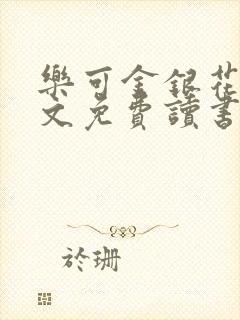 樂可金銀花
文免費讀書
於珊